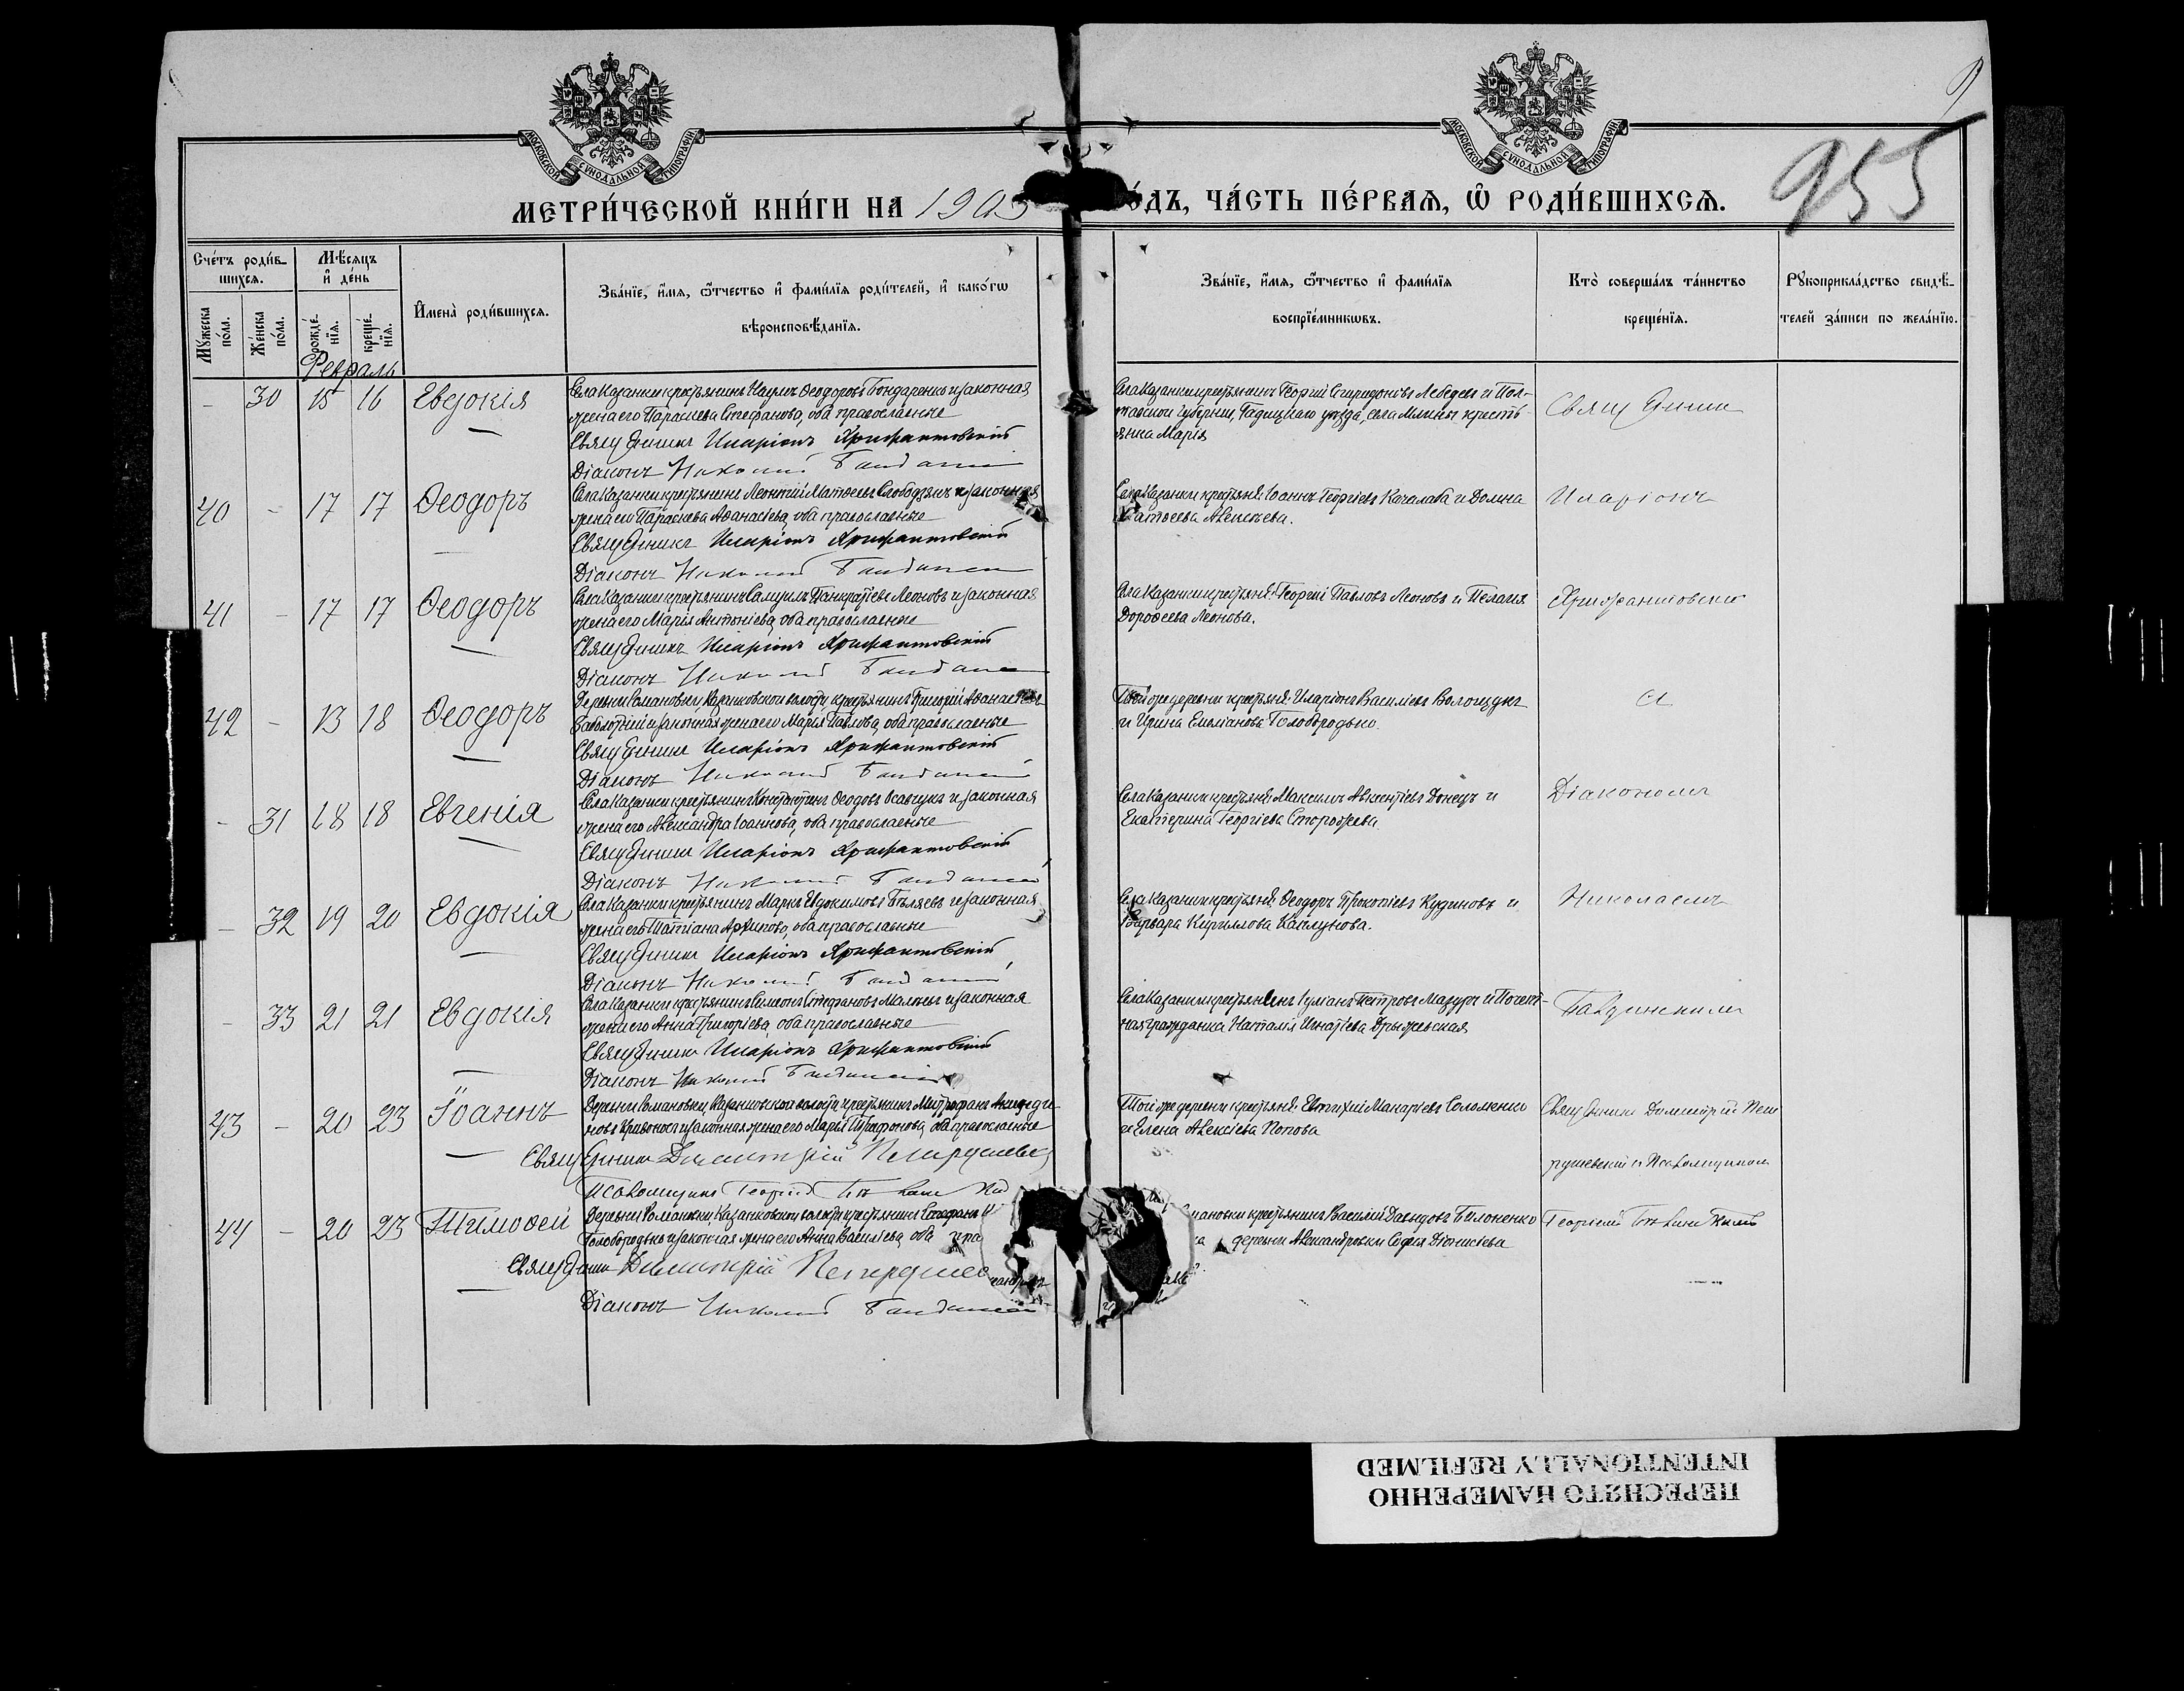 МОСКОВСКОЙ СѴНОДАЛЬНОЙ ТИПОГРАФІИ
МОСКОВСКОЙ СѴНОДАЛЬНОЙ ТИПОГРАФІИ
9
955
МЕТРИ́ЧЕСКОЙ КНИ́ГИ НА 1905
О́ДЪ, ЧА́СТЬ ПЕ́РВАѦ, Ѿ РОДИ́ВШИХСѦ.
Сче́тъ роди́в-
шихсѧ.
Мѣ́сѧцъ
и҆ де́нь
Мꙋ́жеска по́ла.
Же́нска по́ла.
рожде́-нїѧ.
креще́-нїѧ.
И҆мена̀ роди́вшихсѧ.
Зва́нїе, и҆́мѧ, ѻ҆́тчество и҆ фами́лїѧ роди́телей, и҆ како́гѡ
вѣроисповѣ́данїѧ.
Зва́нїе, и҆́мѧ, ѻ҆́тчество и҆ фами́лїѧ
воспрїе́мникѡвъ.
Кто̀ соверша́лъ та́инство
креще́нїѧ.
Рꙋкоприкла́дство свидѣ́-
телей за́писи по жела́нїю.
Февраль
- 30 15 16 Евдокія
Села Казанки крестьянинъ Наумъ Ѳеодоровъ Бондаренко и законная
жена его Параскева Стефанова, оба православные
Священникъ Иларіонъ Хрисантовскій
Діаконъ Николай
Села Казанки крестьянинъ Георгій Спиридоновъ Лебедевъ и Пол-
тавской губерніи, Гадяцкаго уѣзда, села Млины кресть-
янка Марія
Священник
40 - 17 17 Ѳеодоръ
Села Казанки крестьянинъ Леонтій Матѳеевъ Слободзянъ и законная
жена его Параскева Аѳанасіева, оба православные
Священникъ Иларіонъ Хрисантовскій
Діаконъ Николай
Села Казанки крестьяне: Іоаннъ Георгіевъ Качалаба и Домна
Матѳеева Алексѣева.
Иларіонъ
41 - 17 17 Ѳеодоръ
Села Казанки крестьянинъ Самуилъ Панкратіевъ Леоновъ и законная
жена его Марія Антоніева, оба православные
Священникъ Иларіонъ Хрисантовскій
Діаконъ Николай
Села Казанки крестьяне: Георгій Павловъ Леоновъ и Пелагія
Дороѳеева Леонова.
42 - 13 18 Ѳеодоръ
Деревни Романовки, Казанковской волости, крестьянинъ Григорій Аѳанасіевъ
Заболотній и законная жена его Марія Павлова, оба православные
Священникъ Иларіонъ Хрисантовскій
Діаконъ Николай
Той же деревни крестьяне: Иларіонъ Василіевъ
и Ирина Емиліанова Голобородько.
съ
- 31 18 18 Евгенія
Села Казанки крестьянинъ Константинъ Ѳеодоровъ Осавчукъ и законная
жена его Александра Іоаннова, оба православные
Священникъ Иларіонъ Хрисантовскій
Діаконъ Николай
Села Казанки крестьяне: Максимъ Авксентіевъ Донецъ и
Екатерина Георгіева Сторожева.
Діакономъ
- 32 19 20 Евдокія
Села Казанки крестьянинъ Маркъ Евдокимовъ Бѣляевъ и законная
жена его Татіана Архипова, оба православные
Священникъ Иларіонъ Хрисантовскій
Діаконъ Николай
Села Казанки крестьяне: Ѳеодоръ Прокопіевъ Кудиновъ и
Варвара Кириллова Каплунова.
Николаемъ
- 33 21 21 Евдокія
Села Казанки крестьянинъ Симеонъ Стефановъ и законная
жена его Анна Григоріева, оба православные
Священникъ Иларіонъ Хрисантовскій
Діаконъ Николай
Села Казанки крестьянинъ Іуліанъ Петровъ Мазуръ и Почет-
ная гражданка Наталія Игнатіева
43 - 20 23 Іоаннъ
Деревни Романовки, Казанковской волости крестьянинъ Митрофанъ Акинди-
новъ Кривоносъ и законная жена его Марія Трифонова, оба православные
Священникъ Димитрій
Псаломщикъ Георгій
Той же деревни крестьяне: Евтихій Макаріевъ Соломенко
и Елена Алексіева Попова
Священникъ Димитрій
и Псаломщикъ
44 - 20 23 Тимоѳей
Деревни Романовки, Казанковской волости крестьянинъ Стефанъ
Голобородько и законная жена его Анна Василіева, оба пра
Священникъ Димитрій
Діаконъ Николай
мановки крестьянинъ Василій Давидовъ Билоненко
деревни Александровки Софія Діонисіева
Георгій
ПЕРЕСНЯТО НАМЕРЕННО
INTENTIONALLY REFILMED